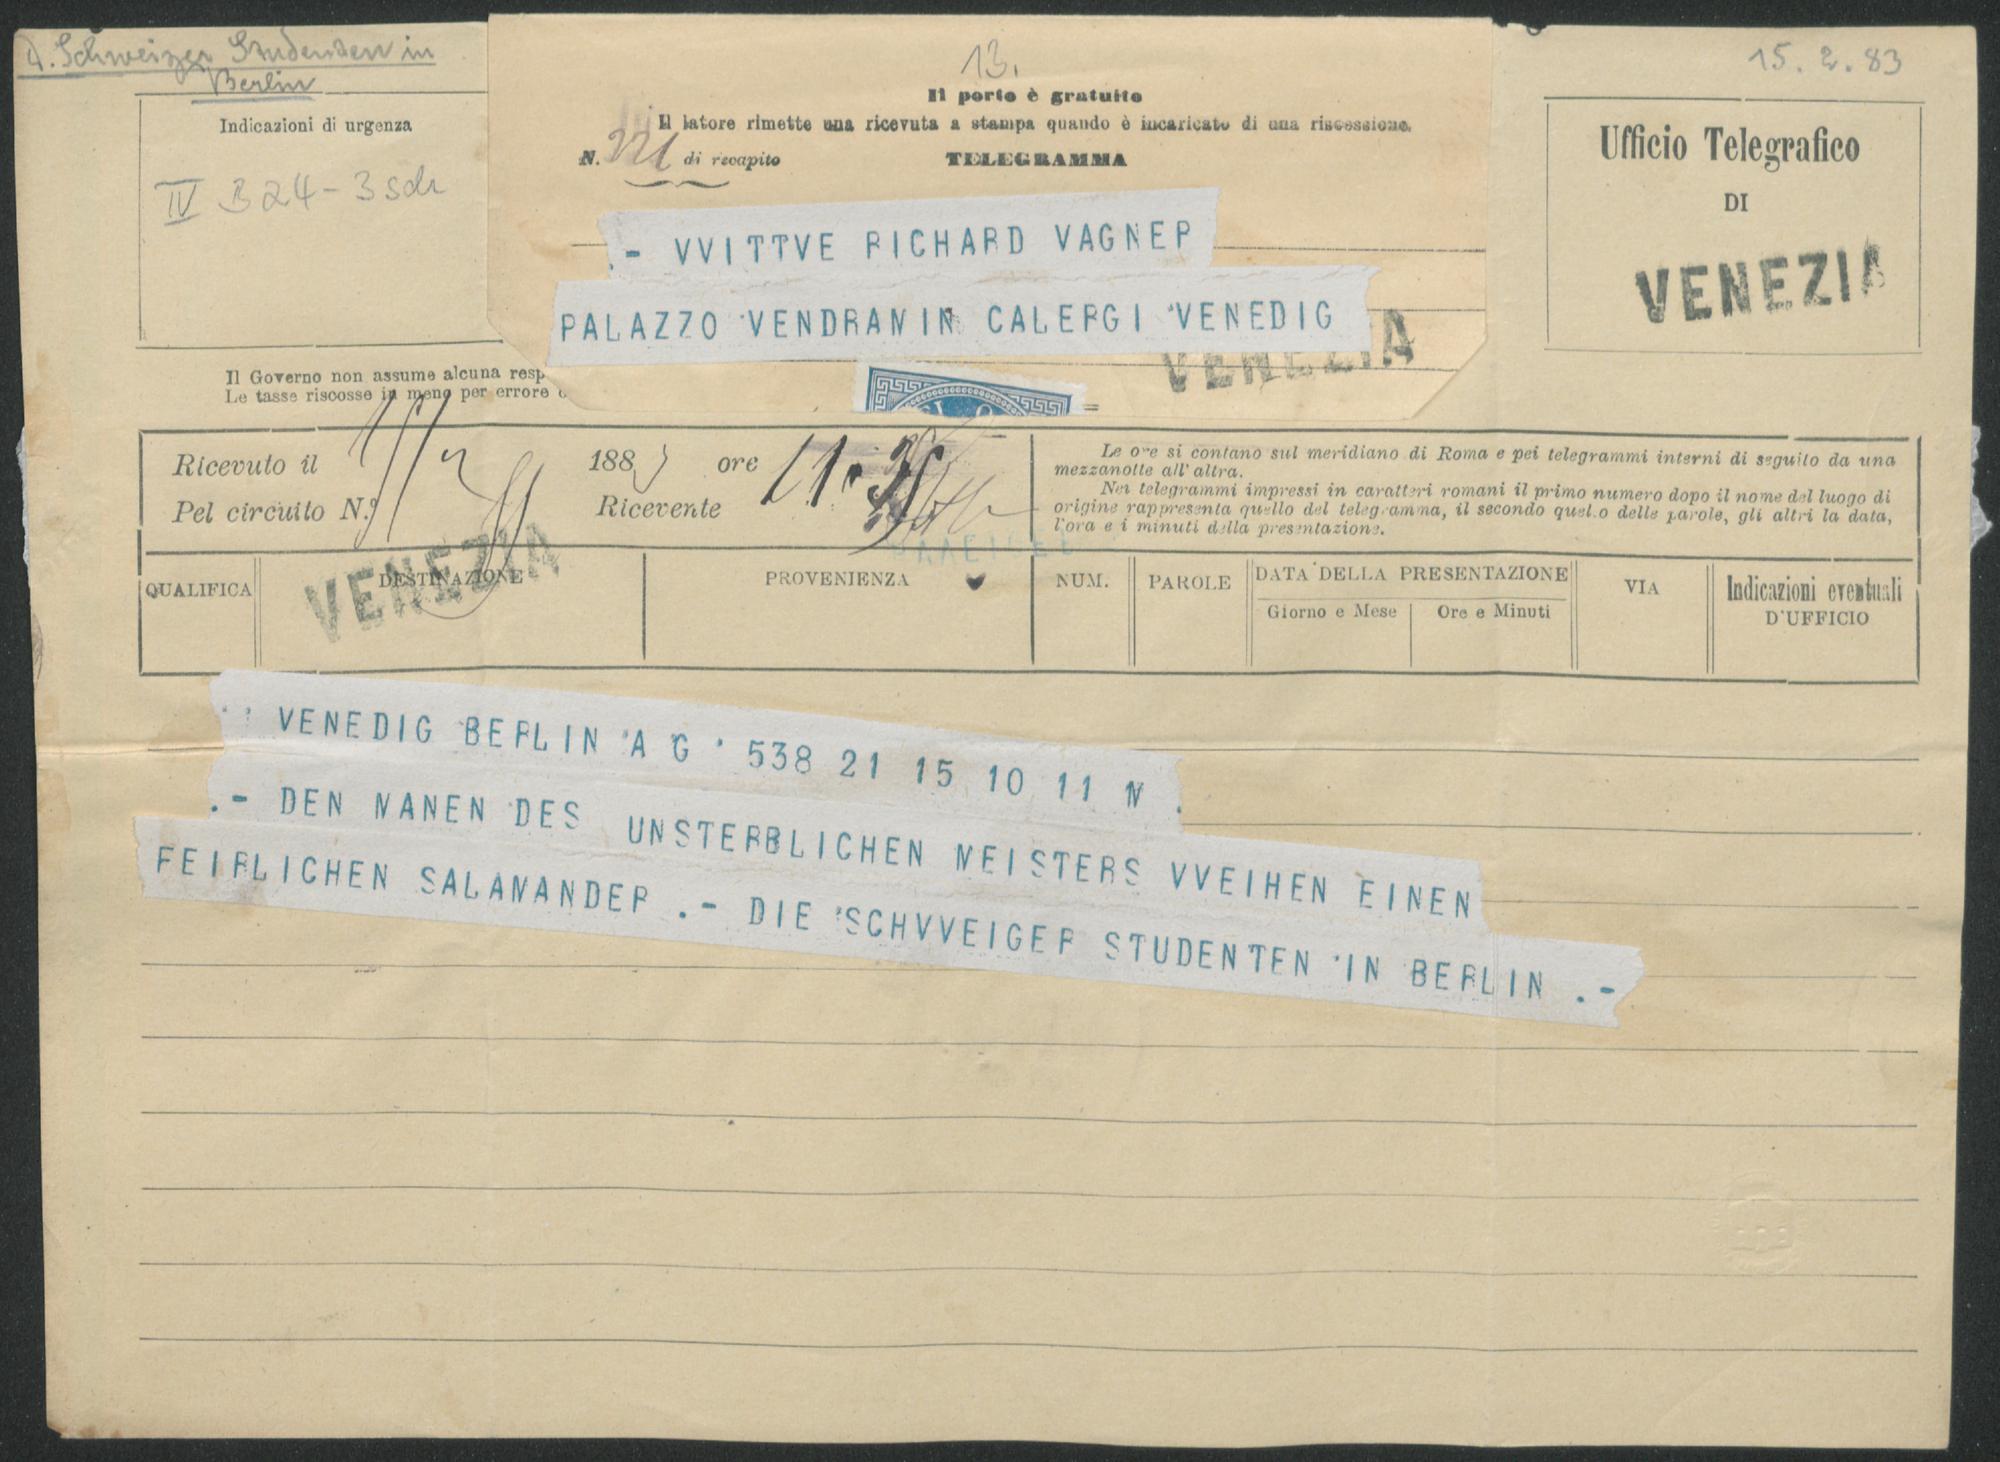 D. Schweizer Studenten in
Berlin
13.
15. 2. 83
Il porto è gratuito
Il latore rimette una ricevuta a stampa quando è incaricato di una riscossione.
N. 221 di recapito
TELEGRAMMA
Indicazioni di urgenza
IV B 24-3 sdr
Ufficio Telegrafico
DI
VENEZIA
.- VVITTVE RICHARD VAGNER
PALAZZO VENDRAMIN CALERGI VENEDIG
VENEZIA
Il Governo non assume alcuna resp
Le tasse riscosse in meno per errore o
Ricevuto il 15/2 1883 ore 11.35
Pel circuito N.º
Ricevente
Le ore si contano sul meridiano di Roma e pei telegrammi interni di seguito da una
mezzanotte all'altra.
Nei telegrammi impressi in caratteri romani il primo numero dopo il nome del luogo di
origine rappresenta quello del telegramma, il secondo quello delle parole, gli altri la data,
l'ora e i minuti della presentazione.
VENEZIA
QUALIFICA
DESTINAZIONE
PROVENIENZA
NUM.
PAROLE
DATA DELLA PRESENTAZIONE
Giorno e Mese
Ore e Minuti
VIA
Indicazioni eventuali
D'UFFICIO
VENEDIG BERLIN A G 538 21 15 10 11 M .
.- DEN MANEN DES UNSTERBBLICHEN MEISTERS VVEIHEN EINEN
FEIRLICHEN SALAMANDER .- DIE SCHVVEIGER STUDENTEN IN BERLIN .-